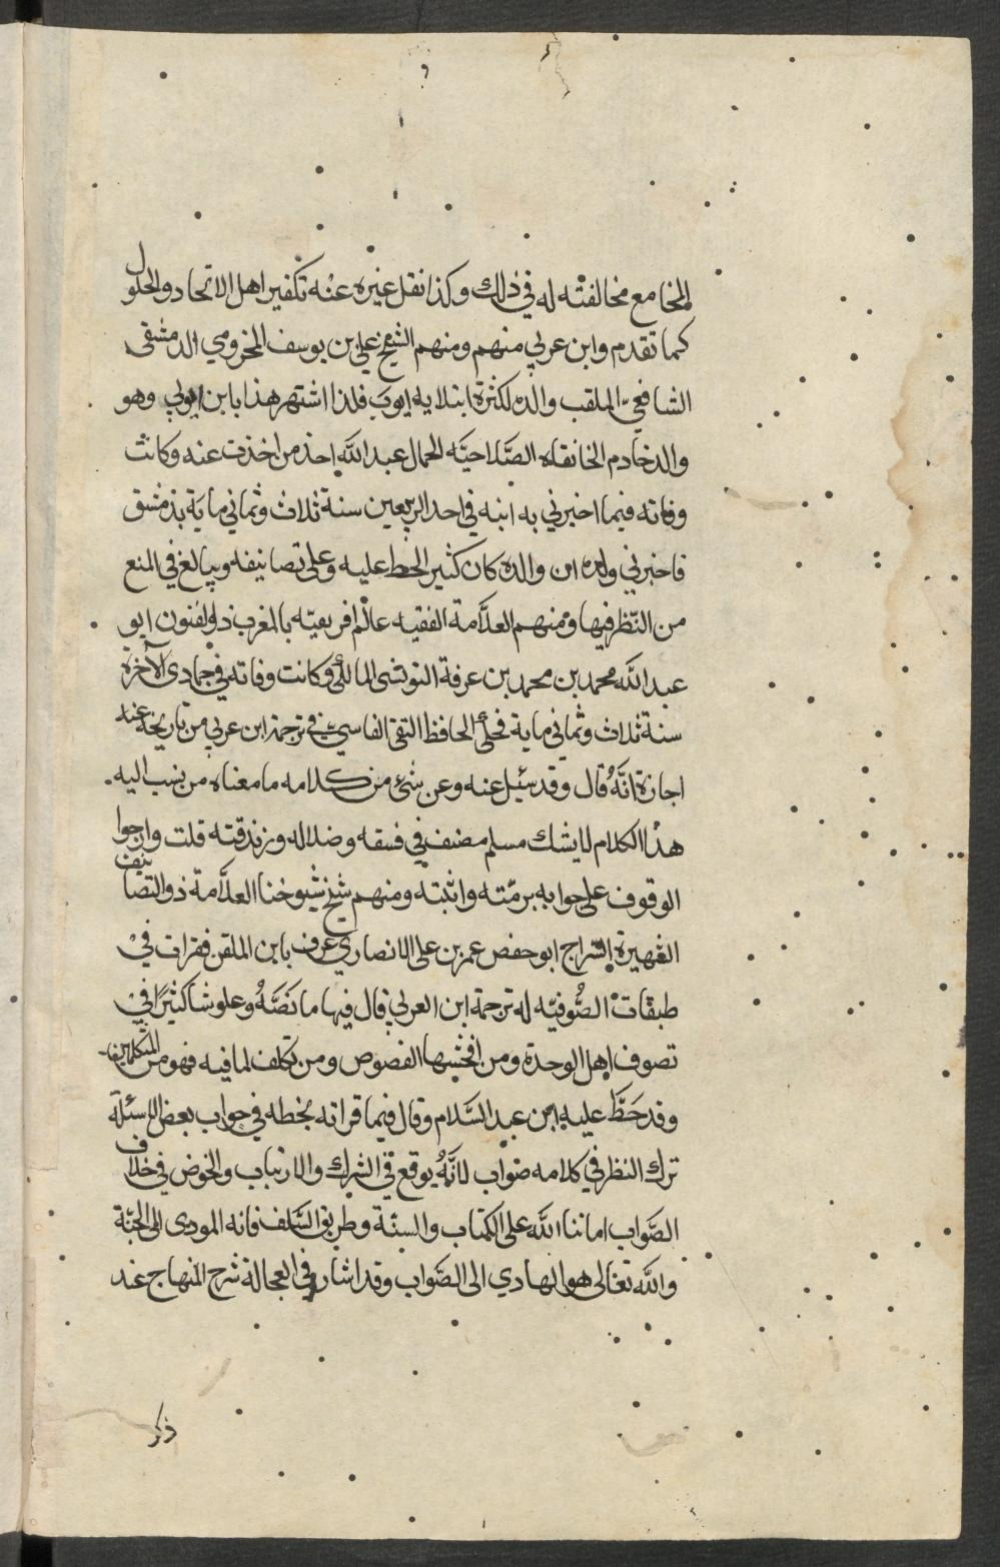 للخامع مخالفته له في ذلك وكذا نقل غيره عنه تكفير اهل الاتحاد والحلول
كما تقدم وابن عربي منهم ومنهم الشيخ علي بن يوسف المخزومي الدمشقى
الشافعي الملقب والده لكثرة ابتلايه ايوب فلذا اشتهر هذا بابن ايوب وهو
والد خادم الخانقاه الصّلاحيّه الجمال عبد اللّه احد من اخذت عنه وكانت
وفاته فيما اخبرني به ابنه في احد الربيعين سنة ثلاث وثماني ماية بدمشق
فاخبرني ولده ان والده كان كثير الحط عليه وعلى تصانيفه ويبالغ في المنع
من النّظر فيها ومنهم العلاّمة الفقيه عالم افريقيّه بالمغرب ذو الفنون ابو
عبد اللّه محمد بن محمد بن عرفة التونسى المالكي وكانت وفاته في جمادى الآخرة
سنة ثلاث وثماني ماية فحكى الحافظ التقى الفاسي في ترجمة ابن عربي من تاريخه عنه
اجازة انّهُ قال وقد سئل عنه وعن شئ من كلامه ما معناه من ينسب اليه
هذا الكلام لا يشك مسلم منصف في فسقه وضلاله وزندقته قلت وارجوا
الوقوف على جوابه برمّته واثبته ومنهم شيخ شيوخنا العلاّمة ذو التصانيف
الشهيرة السّراج ابو حفص عمر بن على الانصاري عرف بابن الملقن فقرات في
طبقات الصُّوفيّه له ترجمة ابن العربي قال فيها ما نصَّهُ وعلو شأ كثيرًا في
تصوف اهل الوحدة ومن افحشها الفصوص ومن تكلف لما فيه فهو من المتكلفين
وقد حَطَّ عليه ابن عبد السّلام وقال فيما قراته بخطه في جواب بعض الاسئلة
ترك النظر في كلامه صواب لانَّهُ يوقع في الشرك والارتياب والخوض في خلاف
الصّواب اماتنا اللّه على الكتاب والسنّة وطريق السّلف فانه المودى الى الجنّة
واللّه تعالى هو الهادي الى الصّواب وقد اشار في العجالة شرح المنهاج عند
ذكر